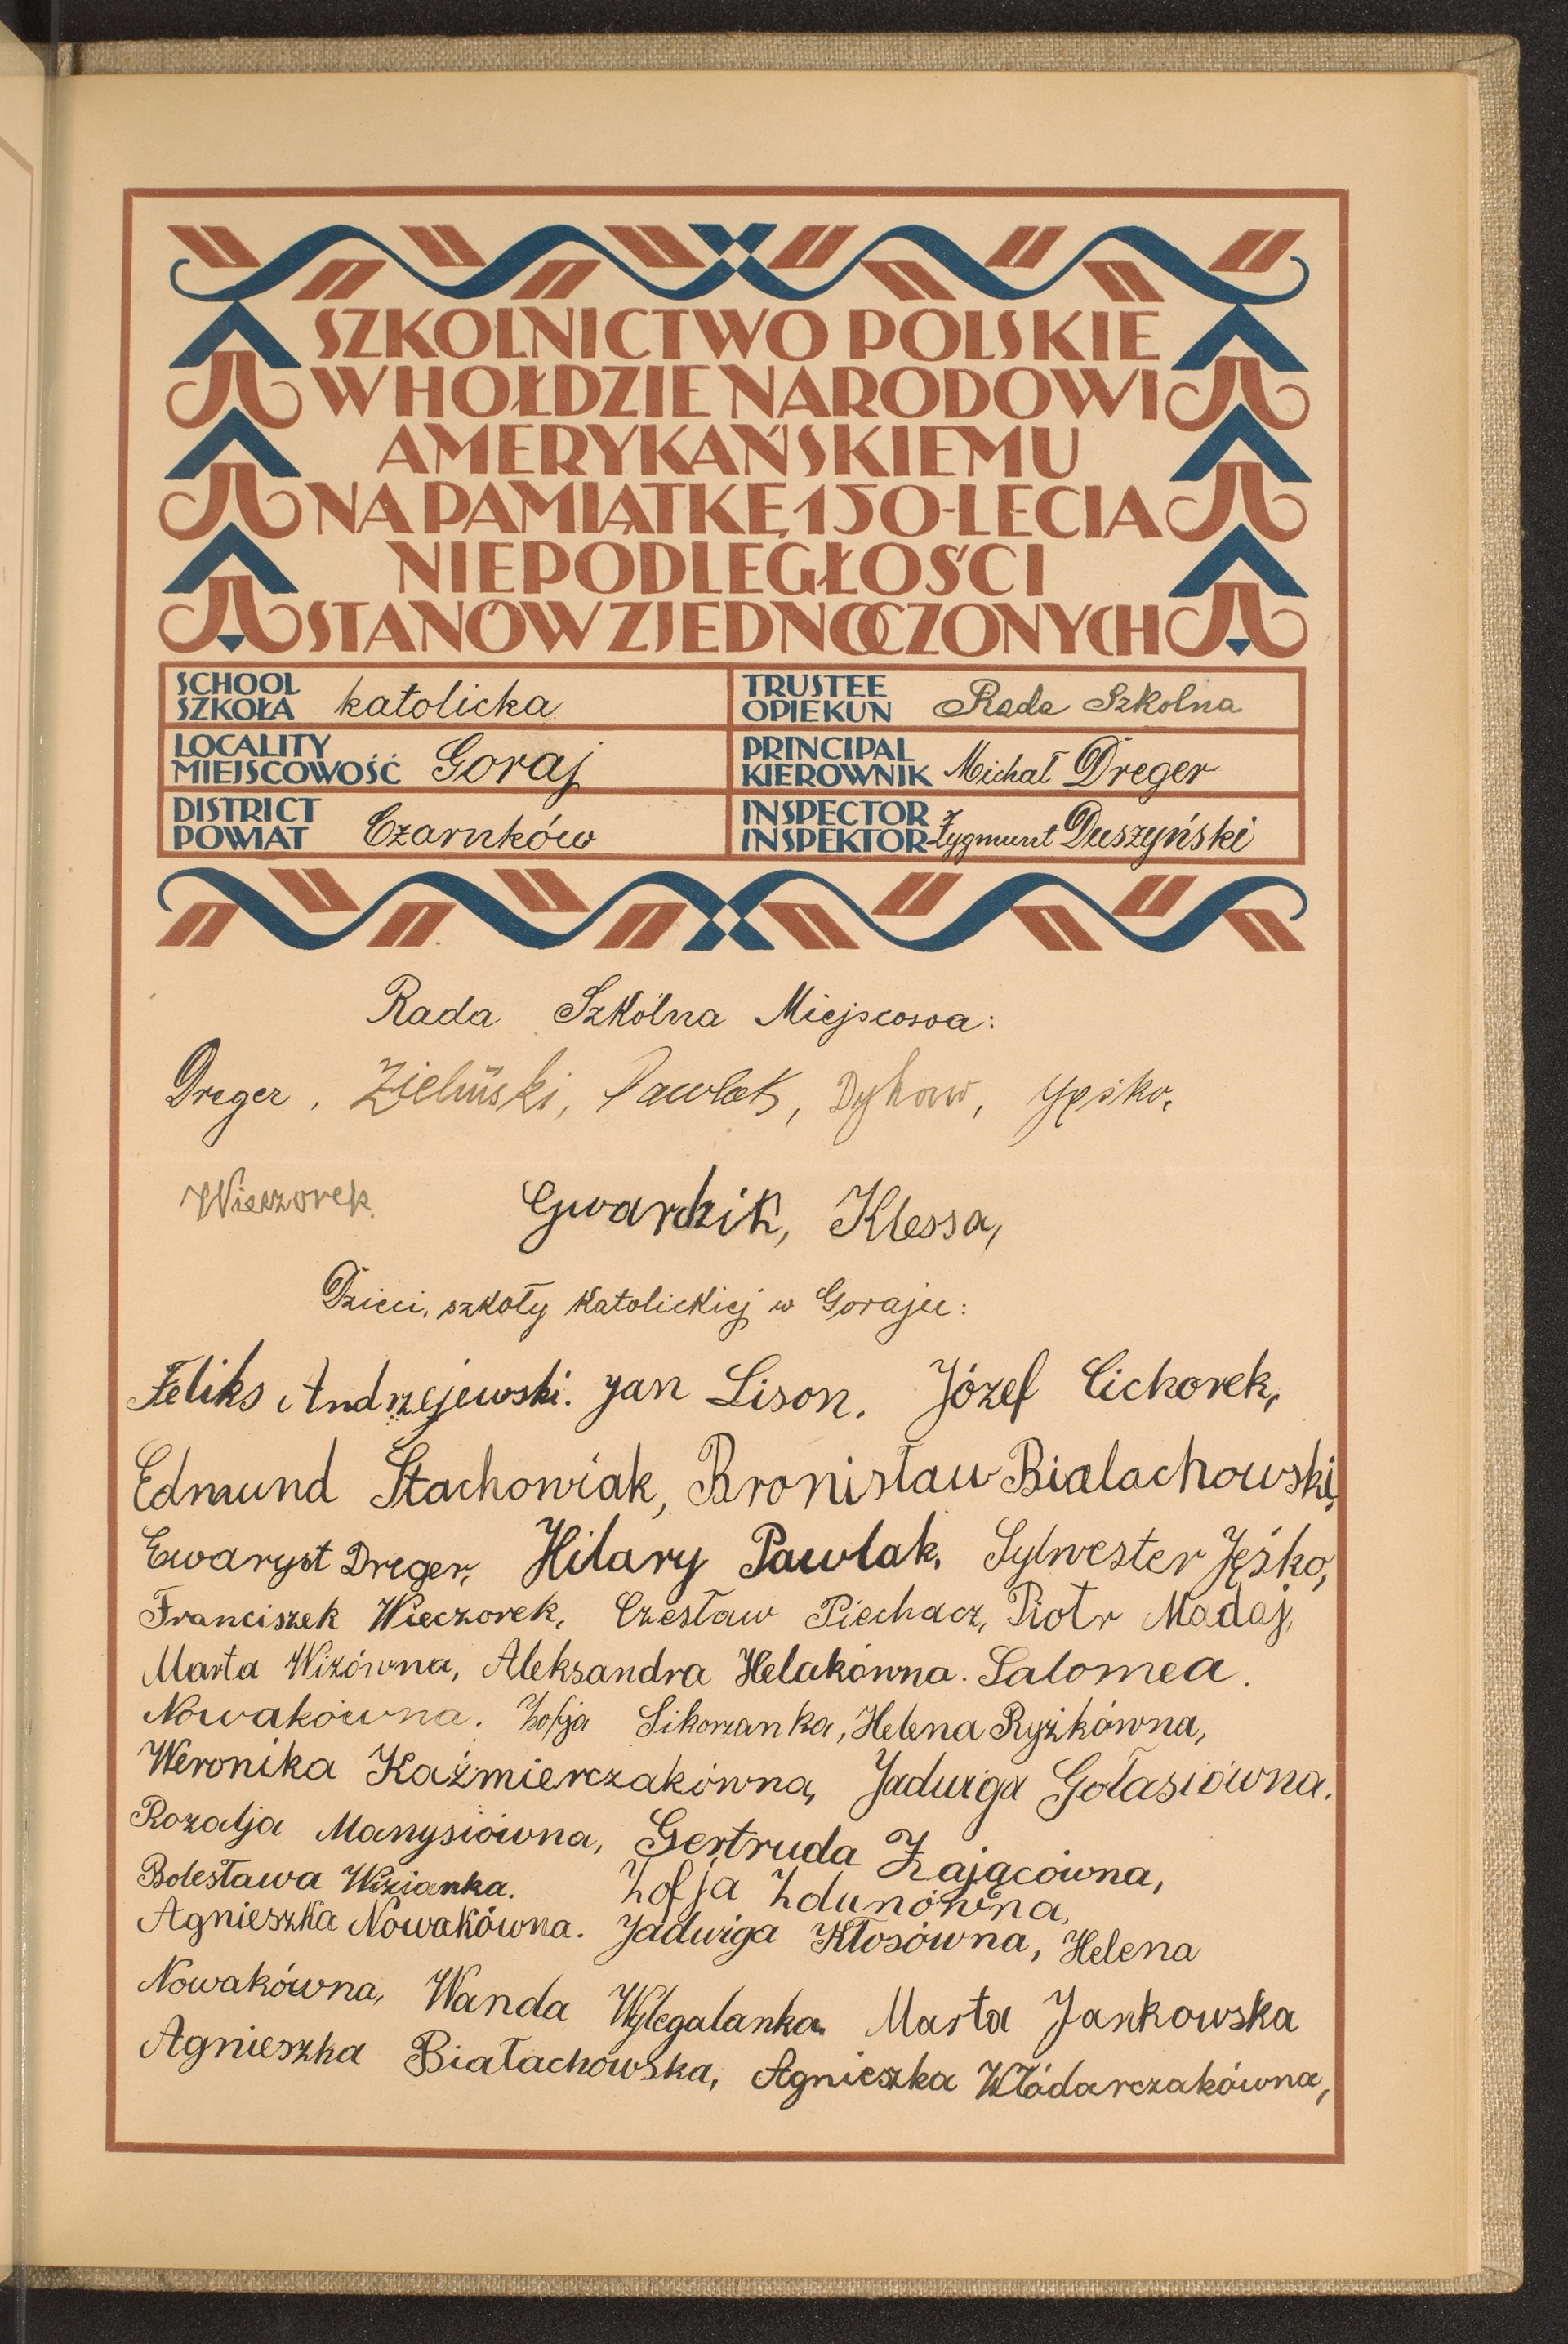 SZKOLNICTWO POLSKIE
W HOŁDZIE NARODOWI
AMERYKAŃSKIEMU
NA PAMIĄTKĘ 150-LECIA
NIEPODLEGŁOŚCI
STANÓW ZJEDNOCZONYCH
SCHOOL
SZKOŁA katolicka
TRUSTEE
OPIEKUN Rada Szkolna
LOCALITY
MIEJSCOWOŚĆ Goraj
PRINCIPAL
KIEROWNIK Michał Dreger
DISTRICT
POWIAT Czarnków
INSPECTOR
INSPEKTOR Zygmunt Duszyński
Rada Szkolna Miejscowa:
Dreger, Zieliński, Pawlak, Jęśko.
Wieczorek Gwardzik, Klessa,
Dzieci, szkoły katolickiej w Goraju:
Feliks Andrzejewski. Jan Lison. Józef Cichorek,
Edmund Stachowiak, Bronisław Bialachowski,
Ewaryst Dreger, Hilary Pawlak, Sylwester Jęśko,
Franciszek Wieczorek, Czesław Piechacz, Piotr Madaj,
Marta Wizówna, Aleksandra Helakówna. Salomea.
Nowakówna. Zofja Sikorzanka, Helena Ryżkówna,
Weronika Kaźmierczakówna, Jadwiga Gołasiówna.
Rozalja Manysiówna, Gertruda Zającówna,
Bolesława Wizianka. Zofja Zdunówna,
Agnieszka Nowakówna. Jadwiga Kłosówna, Helena
Nowakówna, Wanda Wylegalanka Marta Jankowska
Agnieszka Białachowska, Agnieszka Włódarczakówna,